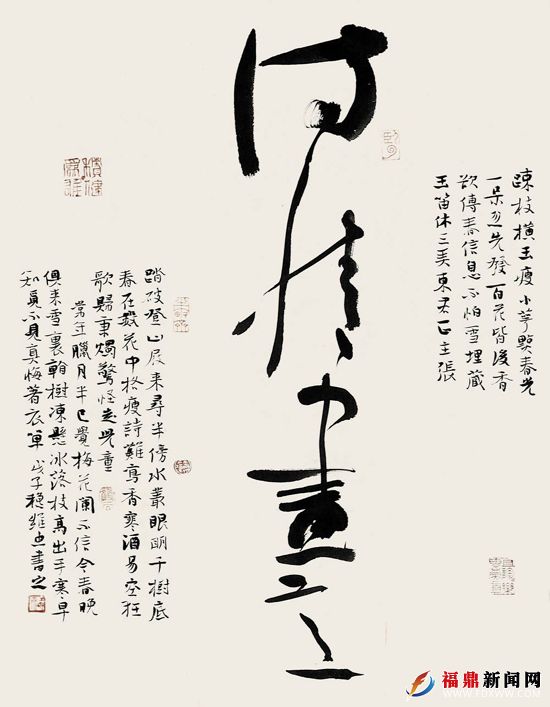 疎枝横玉瘦小萼點春光
一朵忽先發百花皆後香
欲傳春信息不怕雪埋藏
玉笛休三美東君正主張
情
畫
踏破登山屐来尋半傍水叢眼明千樹底
春在數花中格瘦詩難寫香寒酒易空狂
歌歸秉燭驚怪走兒童
常年臘月半已覺梅花闌不信今春晚
俱来雪裏翰樹凍懸冰落枝高出手寒早
知覓不見真悔著衣單 戊子穆維 書之
福鼎新闻网
WWW.FDXWW.COM